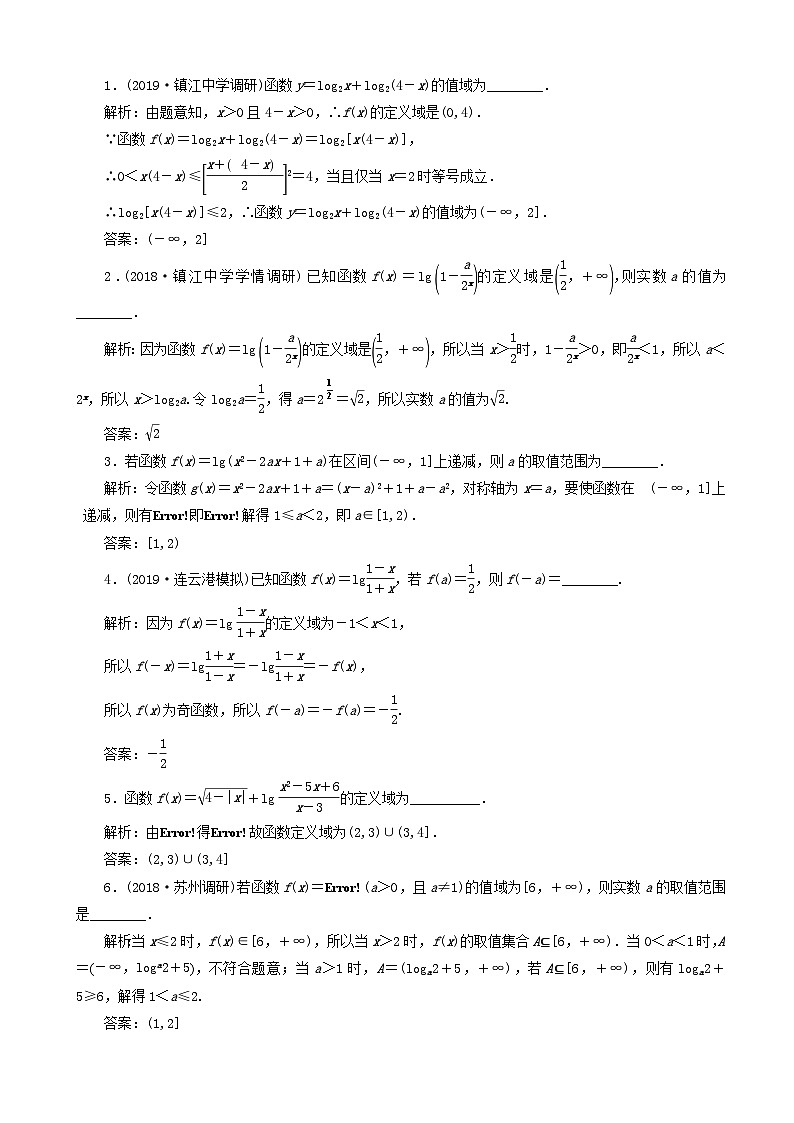 1.(2019·镇江中学调研)函数 y=log₂x+log₂(4-x)的值域为________.
解析:由题意知,x>0 且 4-x>0,∴f(x)的定义域是(0,4).
∵函数 f(x)=log₂x+log₂(4-x)=log₂[x(4-x)],
∴0<x(4-x)≤[(x+( 4-x))/2]²=4,当且仅当 x=2 时等号成立.
∴log₂[x(4-x)]≤2,∴函数 y=log₂x+log₂(4-x)的值域为(-∞,2].
答案:(-∞,2]
2.(2018·镇江中学学情调研)已知函数 f(x)=lg(1-a/2ˣ)的定义域是(1/2,+∞),则实数 a 的值为
________.
解析:因为函数 f(x)=lg(1-a/2ˣ)的定义域是(1/2,+∞),所以当 x>1/2时,1-a/2ˣ>0,即a/2ˣ<1,所以 a<
2ˣ,所以 x>log₂a.令 log₂a=1/2,得 a=2^(1/2)=√2,所以实数 a 的值为√2.
答案:√2
3.若函数 f(x)=lg(x²-2ax+1+a)在区间(-∞,1]上递减,则 a 的取值范围为________.
解析:令函数 g(x)=x²-2ax+1+a=(x-a)²+1+a-a²,对称轴为 x=a,要使函数在 (-∞,1]上
递减,则有Error!即Error!解得 1≤a<2,即 a∈[1,2).
答案:[1,2)
4.(2019·连云港模拟)已知函数 f(x)=lg(1-x)/(1+x),若 f(a)=1/2,则 f(-a)=________.
解析:因为 f(x)=lg(1-x)/(1+x)的定义域为-1<x<1,
所以 f(-x)=lg(1+x)/(1-x)=-lg(1-x)/(1+x)=-f(x),
所以 f(x)为奇函数,所以 f(-a)=-f(a)=-1/2.
答案:-1/2
5.函数 f(x)=√(4-|x|)+lg(x²-5x+6)/(x-3)的定义域为__________.
解析:由Error!得Error!故函数定义域为(2,3)∪(3,4].
答案:(2,3)∪(3,4]
6.(2018·苏州调研)若函数 f(x)=Error!(a>0,且 a≠1)的值域为[6,+∞),则实数 a 的取值范围
是________.
解析当 x≤2 时,f(x)∈[6,+∞),所以当 x>2 时,f(x)的取值集合 A⊆[6,+∞).当 0<a<1 时,A
=(-∞,logᵃ2+5),不符合题意;当 a>1 时,A=(logₐ2+5,+∞),若 A⊆[6,+∞),则有 logₐ2+
5≥6,解得 1<a≤2.
答案:(1,2]